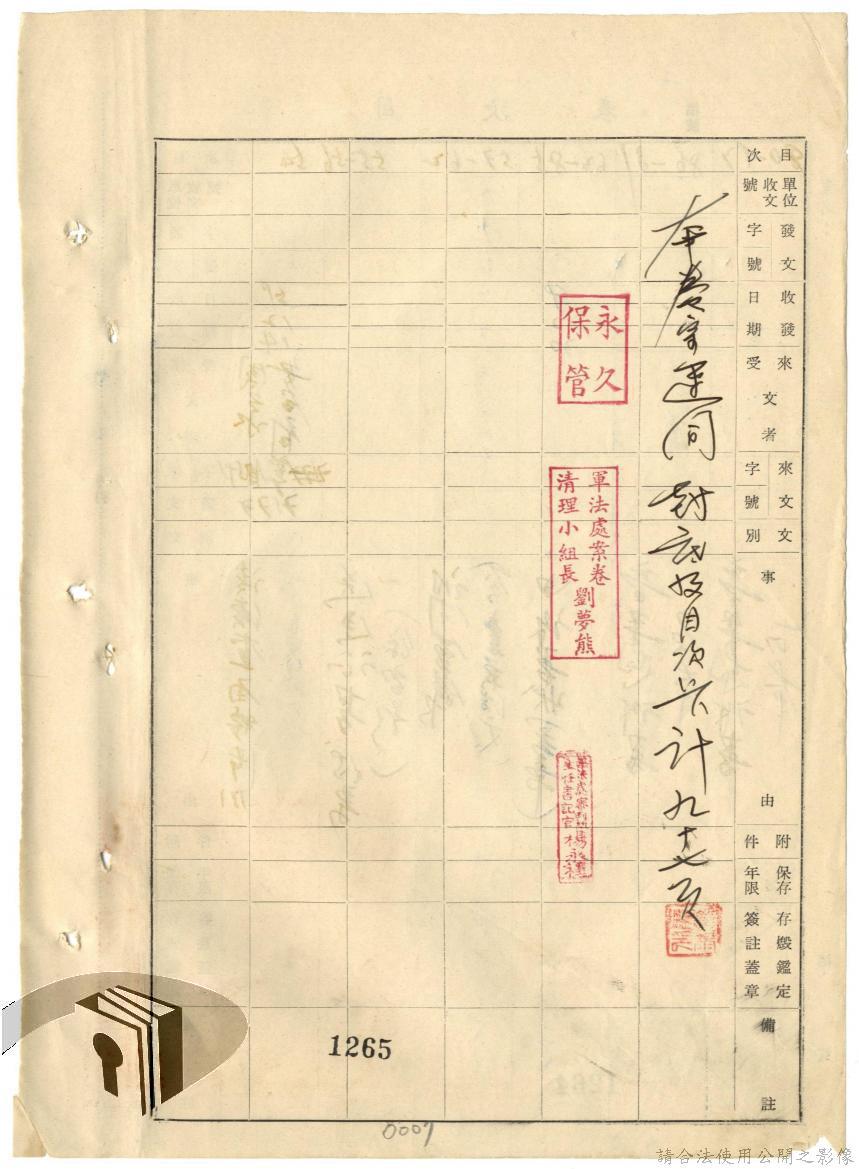 目次
單位收文號
發文字號
收發日期
來文者
受
來文字號
文別
事由
附件
保存年限
存燬鑑定
簽註蓋章
備註
本卷字連同封底及目次共計九十七頁
永久
保管
軍法處案卷
清理小組長劉夢熊
主任書記官楊永祿
1265
0007
請合法使用公開之影像